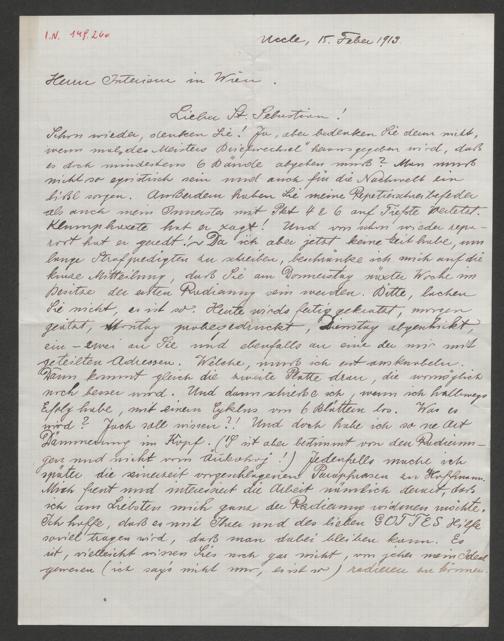 I.N. 149.260
Uccle, 15. Feber 1913
Herrn Interieur in Wien.
Lieber St. Sebastian!
Schon wieder, denken Sie! Ja, aber bedenken Sie denn nicht,
wenn mal des Meisters "Briefwechsel" herausgegeben wird, daß
es doch mindestens 6 Bände abgeben muß? Man muß
nicht so egoistisch sein und auch für die Nachwelt ein
bißl sorgen. Außerdem haben Sie meine
als auch mein Innerstes mit Pkt 4 & 6 auf Tiefste verletzt.
hat er gsagt! Und von ihm wieder
hat er geredt! Da ich aber jetzt keine Zeit habe, um
lange Strafpredigten zu schreiben, beschränke ich mich auf die
kurze Mitteilung, daß Sie am Donnerstag nächste Woche im
Besitze der ersten Radierung sein werden. Bitte, lachen
Sie nicht, es ist so. Heute wirds fertig gekratzt, morgen
geätzt, Montag probegedruckt, Dienstag abgeschickt
ein - zwei an Sie und ebenfalls an eine der mir mit-
geteilten Adressen. Welche, muß ich erst
Dann kommt gleich die zweite Platte dran, die womöglich
noch besser wird. Und dann schieße ich, wenn ich halbwegs
Erfolg habe, mit einem Cyklus von 6 Blättern los. Was es
wird? Jach soll wissen?! Und doch habe ich so ne Art
Dämmerung im Kopf. (Is aber bestimmt von den Radierun-
gen und nicht vom !) Jedenfalls mache ich
später die seinerzeit vorgeschlagenen Paraphrasen zu Hoffmann.
Mich freut und interessiert die Arbeit nämlich derart, daß
ich am Liebsten mich ganz der Radierung widmen möchte.
Ich hoffe, daß es mit Ihrer und des lieben GOTTES Hilfe
soviel tragen wird, daß man dabei bleiben kann. Es
ist, vielleicht wissen Sie noch gar nicht, von jeher mein Ideal
gewesen (ich sag's nicht nur, es ist so) radieren zu können